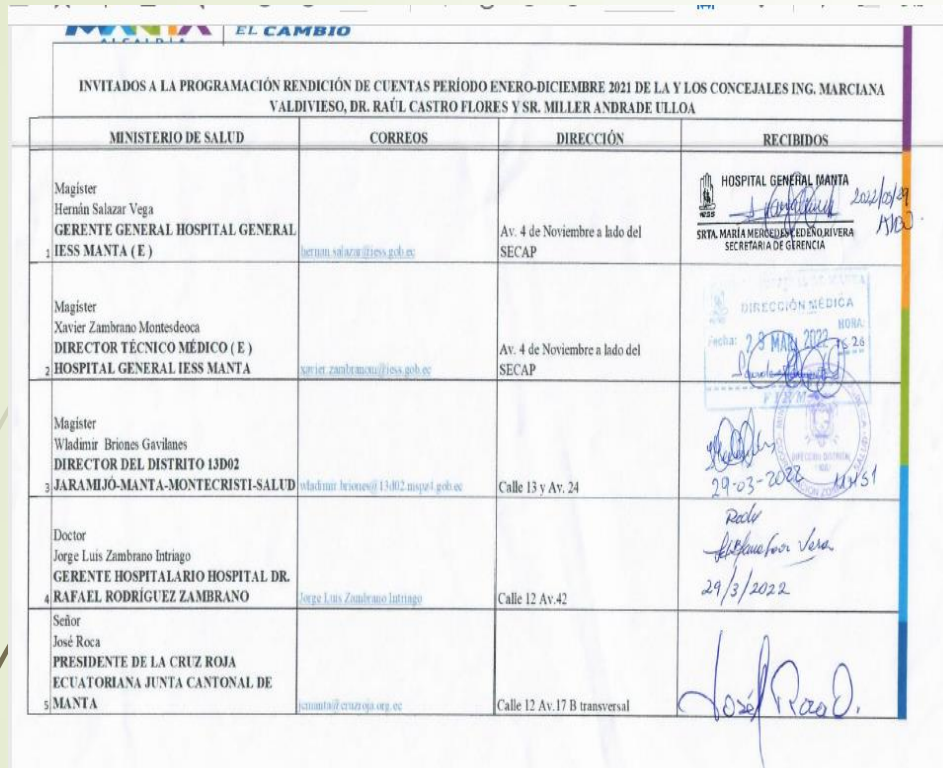 MANTA
ALCALDÍA
EL CAMBIO
INVITADOS A LA PROGRAMACIÓN RENDICIÓN DE CUENTAS PERÍODO ENERO-DICIEMBRE 2021 DE LA Y LOS CONCEJALES ING. MARCIANA
VALDIVIESO, DR. RAÚL CASTRO FLORES Y SR. MILLER ANDRADE ULLOA
MINISTERIO DE SALUD CORREOS DIRECCIÓN RECIBIDOS
Magister
Hernán Salazar Vega
GERENTE GENERAL HOSPITAL GENERAL
1 IESS MANTA ( E )
hernan.salazar@iess.gob.ec
Av. 4 de Noviembre a lado del
SECAP
HOSPITAL GENERAL MANTA
IESS
2022/03/29
SRTA. MARÍA MERCEDES CEDEÑO RIVERA
SECRETARIA DE GERENCIA
Magister
Xavier Zambrano Montesdeoca
DIRECTOR TÉCNICO MÉDICO ( E )
2 HOSPITAL GENERAL IESS MANTA
Av. 4 de Noviembre a lado del
SECAP
DIRECCIÓN MÉDICA
HORA:
Fecha: 29 MAR 2022 15:26
FIRMA
Magister
Wladimir Briones Gavilanes
DIRECTOR DEL DISTRITO 13D02
3 JARAMIJÓ-MANTA-MONTECRISTI-SALUD
wladimir.briones@13d02.mspz4.gob.ec
Calle 13 y Av. 24
29-03-2022 11H51
Doctor
Jorge Luis Zambrano Intriago
GERENTE HOSPITALARIO HOSPITAL DR.
4 RAFAEL RODRÍGUEZ ZAMBRANO
Jorge Luis Zambrano Intriago
Calle 12 Av.42
Vera
29/3/2022
Señor
José Roca
PRESIDENTE DE LA CRUZ ROJA
ECUATORIANA JUNTA CANTONAL DE
5 MANTA
jcmanta@cruzroja.org.ec
Calle 12 Av.17 B transversal
José Roca O.